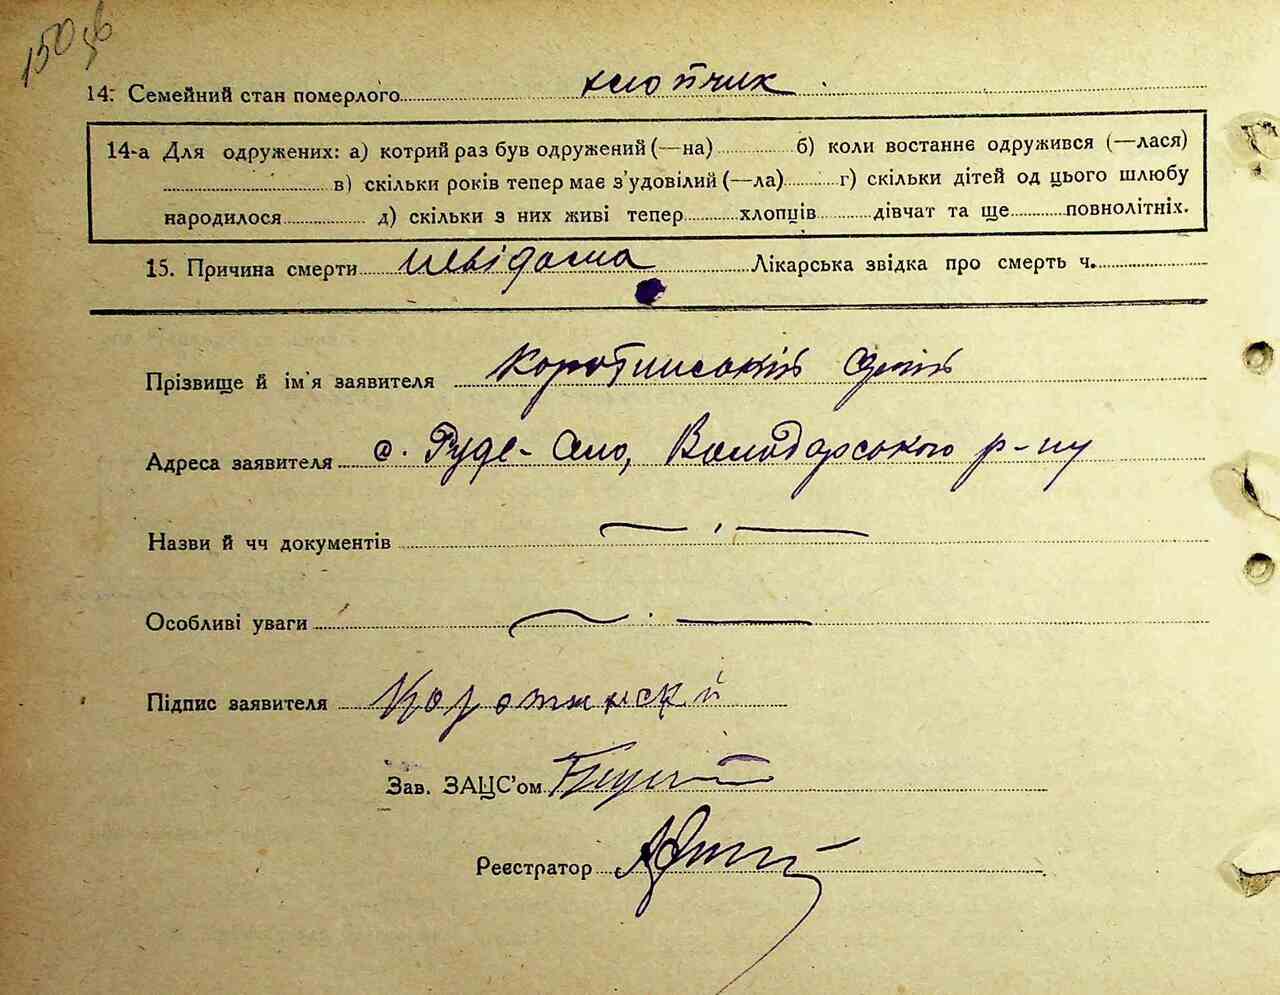 150 зв
14. Семейний стан померлого хлопчик
14-а Для одружених: а) котрий раз був одружений (—на) б) коли востаннє одружився (—лася)
в) скільки років тепер має з'удовілий (—ла) г) скільки дітей од цього шлюбу
народилося д) скільки з них живі тепер хлопців дівчат та ще повнолітніх.
15. Причина смерти невідома Лікарська звідка про смерть ч.
Прізвище й ім'я заявителя Коротинський
Адреса заявителя с. Руде-Село, Володарського р-ну
Назви й чч документів
Особливі уваги
Підпис заявителя Коротинский
Зав. ЗАЦС'ом
Реєстратор